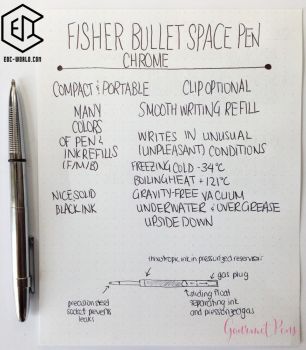 EDC-WORLD.COM
FISHER BULLET SPACE PEN
CHROME
COMPACT & PORTABLE
CLIP OPTIONAL
MANY
COLORS
OF PEN &
INK REFILLS
(F/M/B)
SMOOTH WRITING REFILL
WRITES IN UNUSUAL
(UNPLEASANT) CONDITIONS
FREEZING COLD -34°C
BOILING HEAT +121°C
NICE SOLID
BLACK INK
GRAVITY-FREE VACUUM
UNDERWATER & OVER GREASE
UPSIDE DOWN
thixotropic ink in pressurized reservoir
gas plug
precision steel
socket prevents
leaks
sliding float
separating ink
and pressurized gas
Gourmet Pens